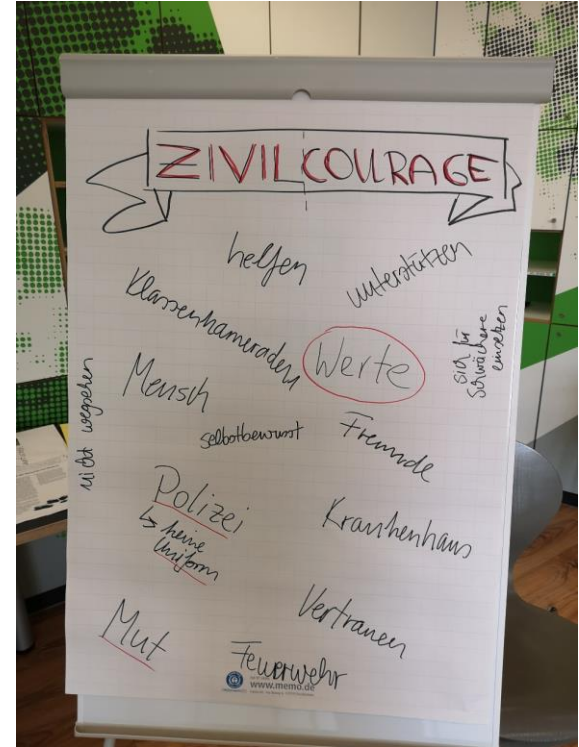 ZIVILCOURAGE
helfen
unterstützen
Klassenkameraden
Werte
sich für
Schwächere
einsetzen
Mensch
nicht wegsehen
selbstbewusst
Freunde
Polizei
↳ keine
Uniform
Krankenhaus
Vertrauen
Mut
Feuerwehr
www.memo.de